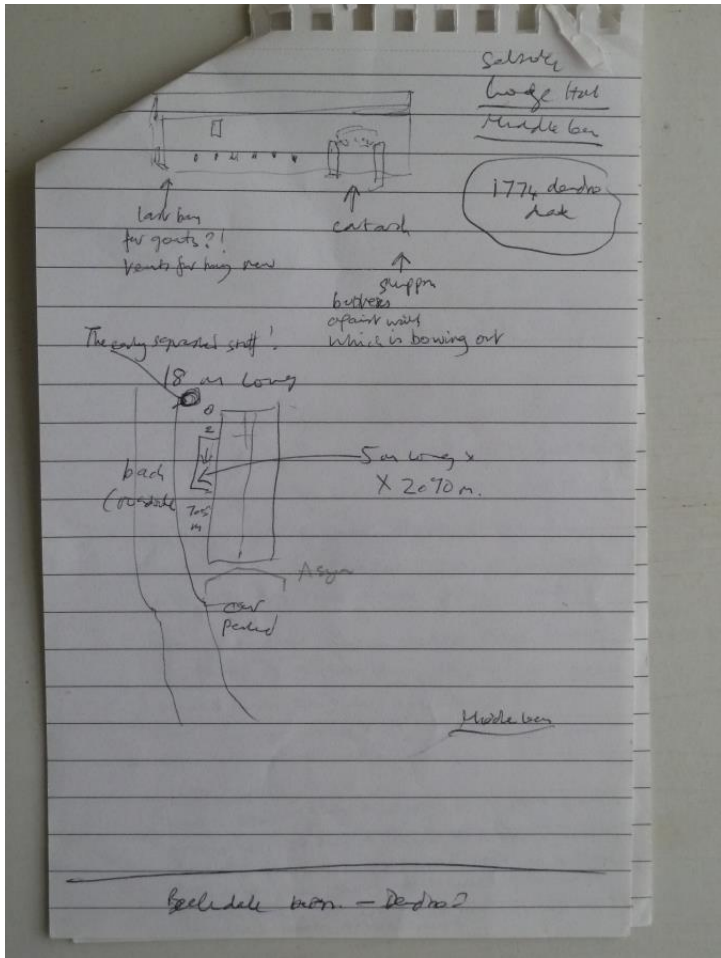 Selside
Lodge Hall
Middle barn
1774 dendro
date
last bay
for goats?!
vents for hay mew
cart arch
support
buttress
against wall
which is bowing out
The early squashed stuff!
18 m long
0
2
5 m long x
X 2.90 m.
back
7.5
m
Asym
over
Middle barn
Beckdale barn. - Dendro?